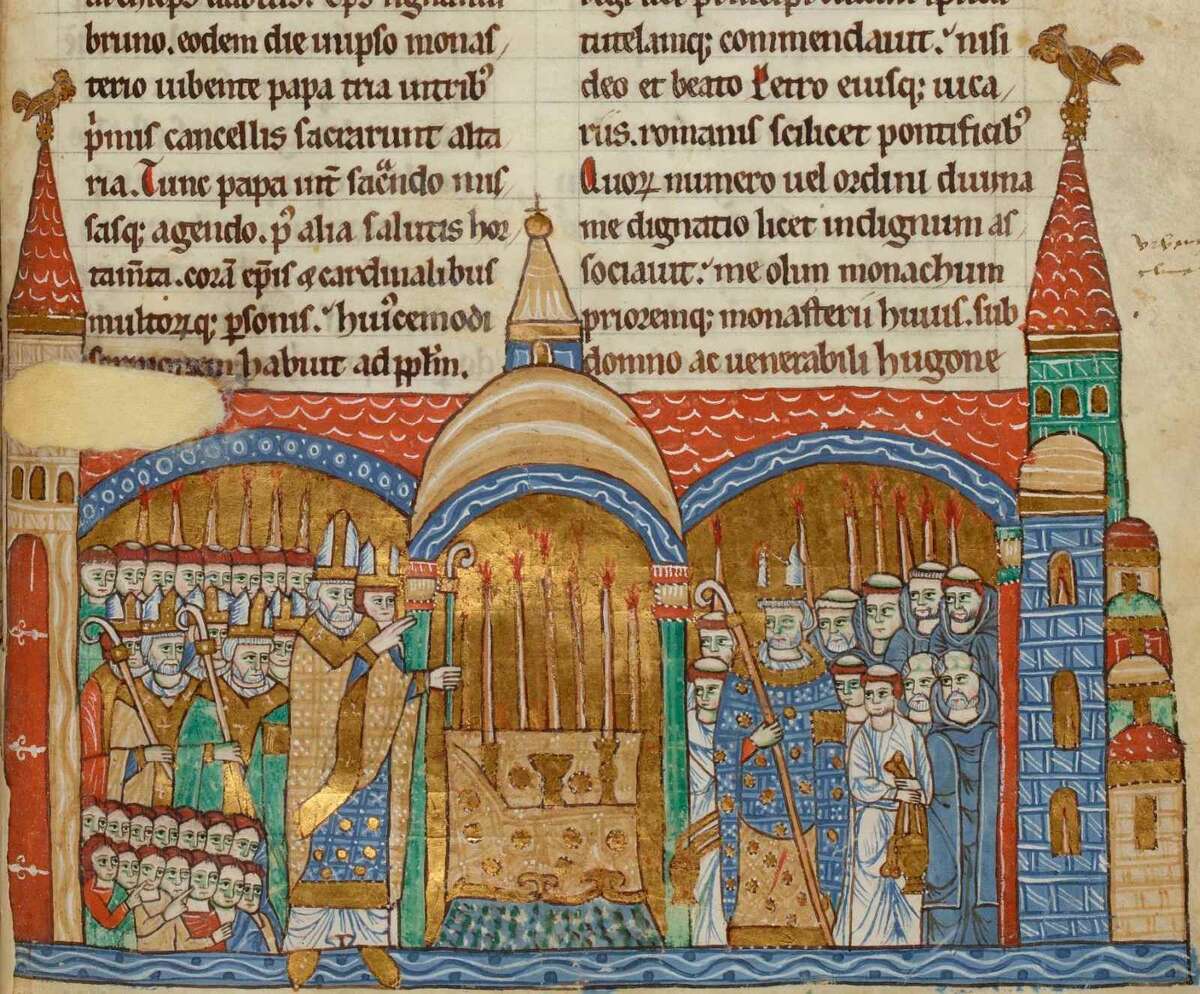 bruno. eodem die inipso monas/
terio iubente papa tria intribꝰ
p̍mis cancellis sacrarunt alta
ria. Tunc papa int̄ sac̓ndo mis/
sasq; agendo. p̄ alia salutis hor/
tam̄ta. corā ep̄is & cardinalibus
multoꝝq; p̱sonis. hui᾽cemodi
habuit ad pp̄lm.
tutelamq; commendauit. nisi
deo et beato Petro eiusq; uica/
riis. romanis scilicet pontificibꝰ
Quoꝝ numero uel ordini diuina
me dignatio licet indignum as/
sociauit. me olim monachum
prioremq; monasterii huius. sub
domno ac uenerabili hugone